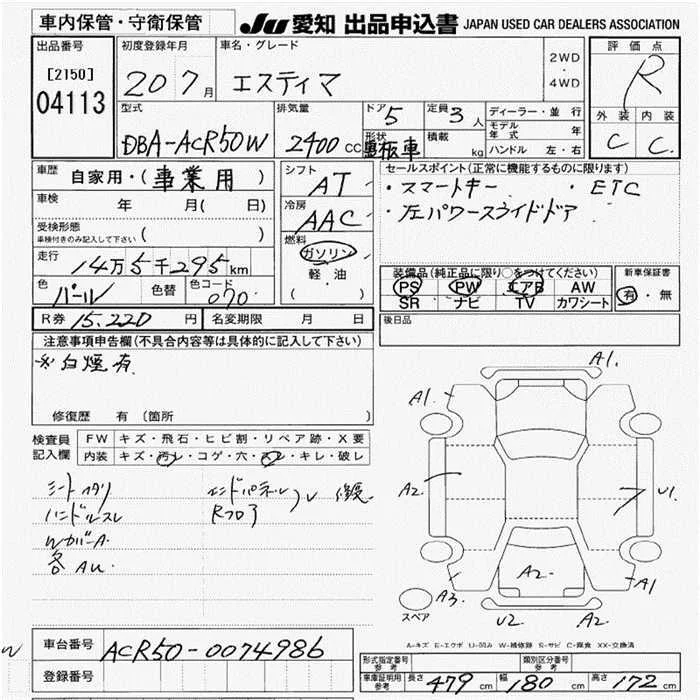 車内保管・守衛保管
JU 愛知 出品申込書 JAPAN USED CAR DEALERS ASSOCIATION
出品番号
[2150]
04113
初度登録年月
20 7月
車名・グレード
エスティマ
2WD
・
4WD
評価点
R
外装 内装
C C
型式
DBA-ACR50W
排気量
2400 CC
ドア 5
形状
定員 3人
積載 kg
ディーラー・並行
モデル年式 年
ハンドル 左・右
車歴
自家用・(事業用)
車検 年 月( 日)
受検形態
車検付きのみ記入して下さい ( )
走行
14万5千295km
色 パール 色替 色コード 070
シフト
AT
冷房
AAC
燃料
ガソリン
軽・油
( )
セールスポイント(正常に機能するものに限ります)
・スマートキー ・ETC
・左パワースライドドア
装備品(純正品に限り○をつけてください)
PS PW エアB AW
SR ナビ TV カワシート
新車保証書
有・無
R券 15.220 円 名変期限 月 日
後日品
注意事項申告欄(不具合内容等は具体的に記入して下さい)
※白煙有
修復歴 有 (箇所
検査員記入欄
FW キズ・飛石・ヒビ割・リペア跡・X要
内装 キズ・汚レ・コゲ・穴・スレ・キレ・破レ
シートヘタリ
ハンドルスレ
WカバーA
各AU
エンドパネル
Rフロア
修復
A1.
A1.
A2.
U1.
A2.
A3.
A1
U2
A2.
スペア
A-キズ E-エクボ U-凹み W-補修跡 S-サビ C-腐食 XX-交換済
車台番号 ACR50-0074986
登録番号
形式指定番号 参考 類別区分番号 参考
車庫証明用 参考 長さ 479 cm 幅 180 cm 高さ 172 cm